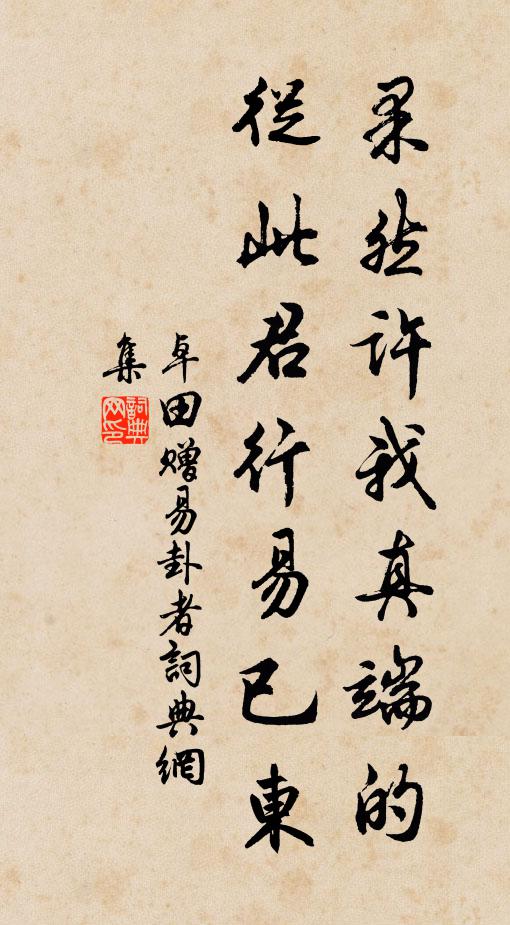 果然許我真端的
從此君行易已東
卓田贈易卦者詞典網
集
詞典
网印